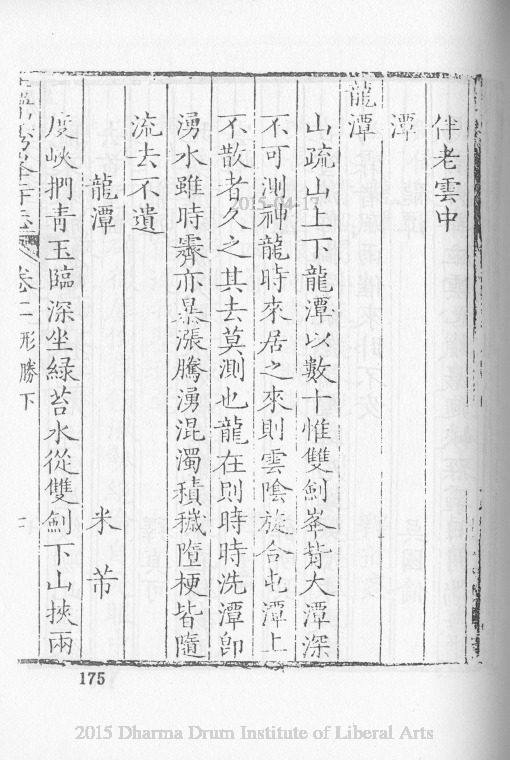 伴老雲中
潭
龍潭
山疏山上下龍潭以數十惟雙劍峯背大潭深
不可測神龍時來居之來則雲陰旋合屯潭上
不散者久之其去莫測也龍在則時時洗潭卽
湧水雖時霽亦暴漲騰湧混濁積穢隨梗皆隨
流去不遺
龍潭 米芾
度峽捫青玉臨深坐綠苔水從雙劍下山挾兩
卷二 形勝下
175
2015-04-17
2015 Dharma Drum Institute of Liberal Arts